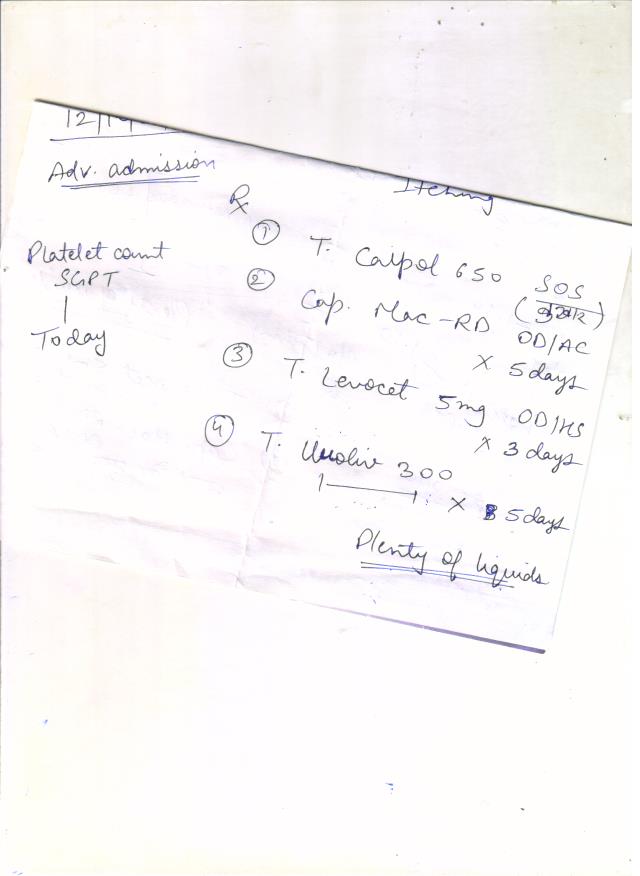 Adv. admission
Itching
Rx
Platelet count
SGPT
Today
① T. Calpol 650 SOS
(बुखार)
② Cap. Mac-RD OD/AC
x 5 days
③ T. Levocet 5mg OD/HS
x 3 days
④ T. 300
1 — 1 x 5 days
Plenty of liquids